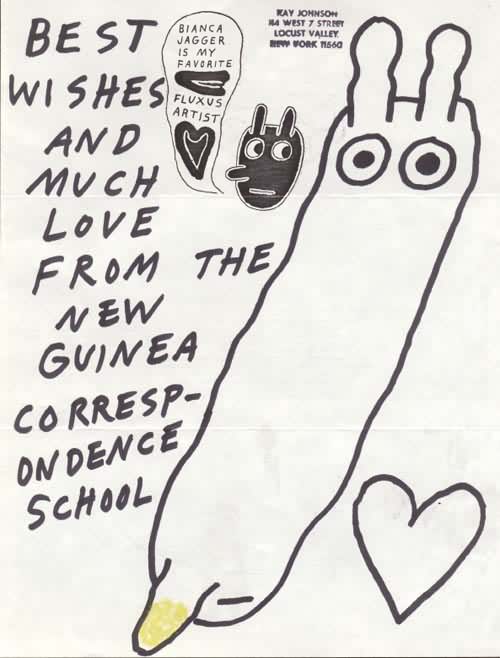 BEST
WISHES
AND
MUCH
LOVE
FROM THE
NEW
GUINEA
CORRESP-
ONDENCE
SCHOOL
BIANCA
JAGGER
IS MY
FAVORITE
FLUXUS
ARTIST
RAY JOHNSON
44 WEST 7 STREET
LOCUST VALLEY
NEW YORK 11560